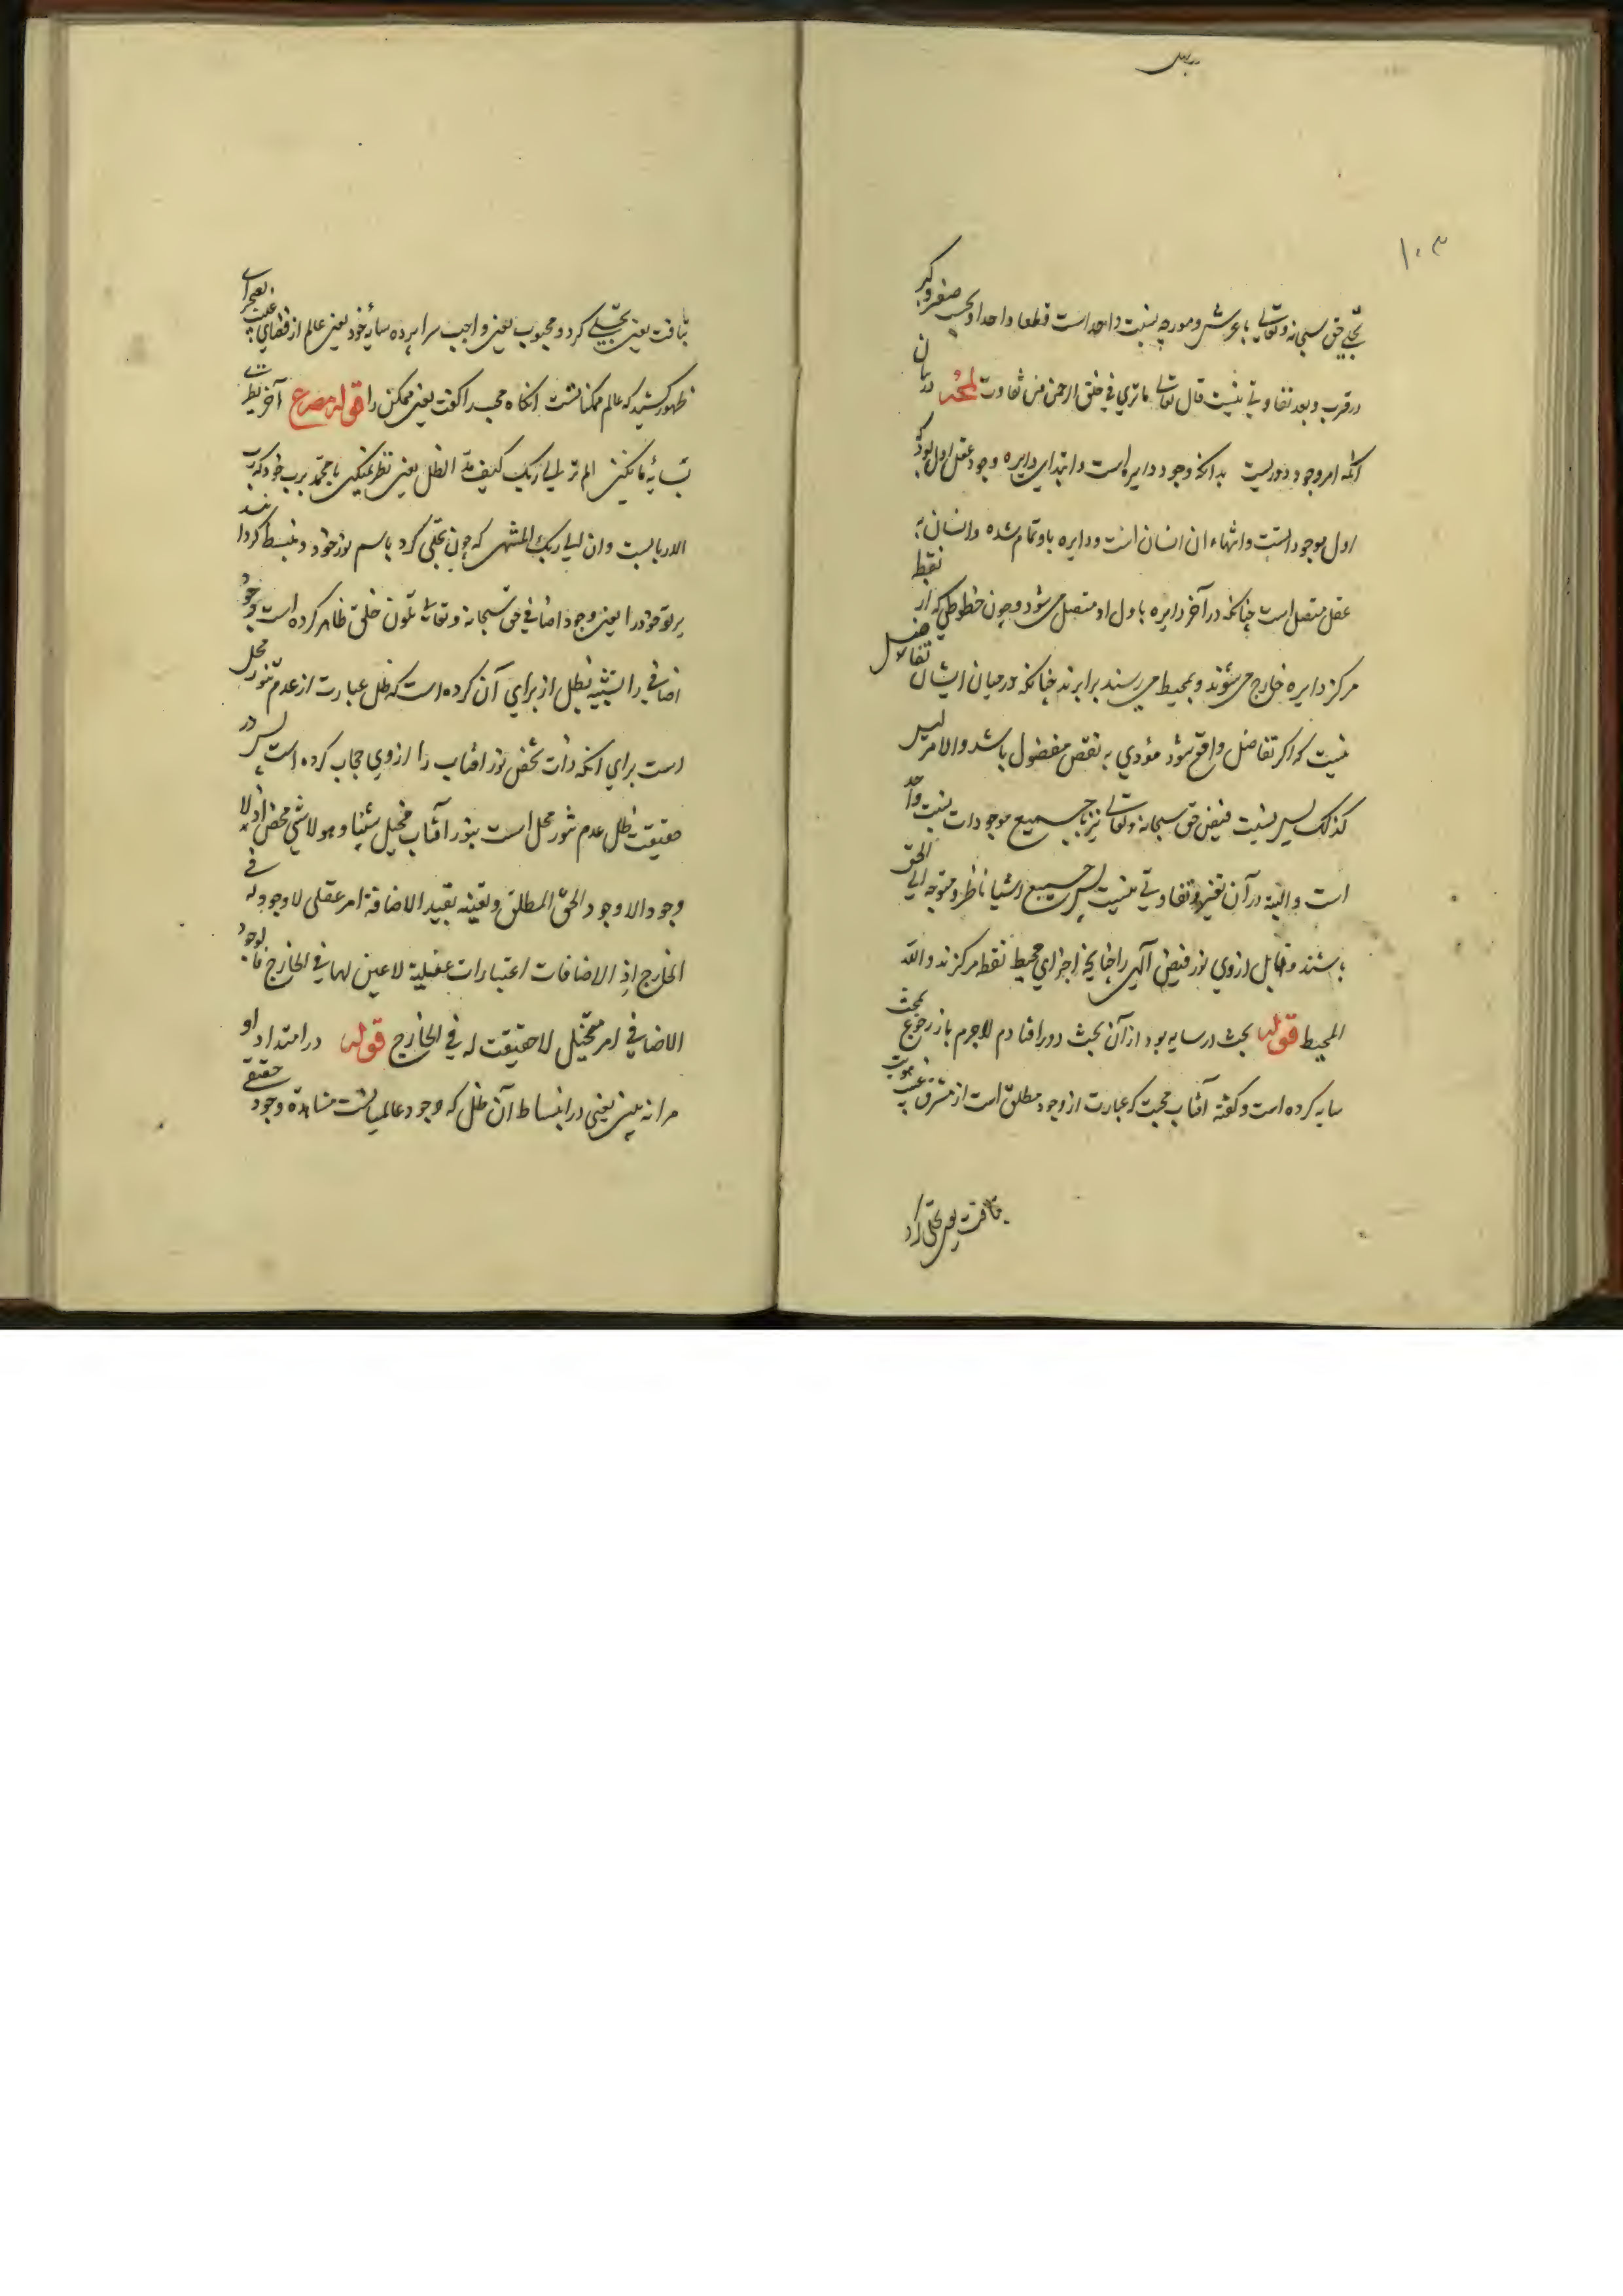 ۱۰۳
تجلی حق سبحانه و تعالی با عرش و مورچه بنسبت واحد است قطعا واحدا و بحسب صغر و کبر
در قرب و بعد تفاوتی نیست قال تعالی ما تری فی خلق الرحمن من تفاوت در بیان
آنکه امر وجود دوریست بدانکه وجود دایره است و ابتدای دایره وجود عقل اول بود که
اول موجود است و انتهاء ان انسان است و دایره باو تمام شده و انسان به
عقل متصل است چنانکه در آخر دایره باول او متصل می شود و چون خطوطی که از نقطه
مرکز دایره خارج می شوند و بمحیط می رسند برابرند چنانکه در میان ایشان تفاضل
نیست که اکر تفاضل واقع شود مؤدی به نقص مفضول باشد و الامر لیس
کذلک پس نسبت فیض حق سبحانه و تعالی نیز با جمیع موجودات بنسبت واحد
است و البته در آن تغیر و تفاوتی نیست پس جمیع اشیا ناظر و متوجه الی الحق
باشند و قابل از وی نور فیض آلهی را چنانچه اجزای محیط نقطه مرکزند و الله
المحیط قوله بحث در سایه بود از آن بحث دور افتادم لاجرم باز رجوع ببحث
سایه کرده است و کفته آفتاب محبت که عبارت از وجود مطلق است از مشرق غیب هویت
بتافت یعنی تجلی کرد
بتافت یعنی تجلی کرد و محبوب یعنی واجب سراپرده سایهٔ خود یعنی عالم از فضای غیب بصحرای
ظهور کشید که عالم ممکناتست انکاه محب را کفت یعنی ممکن را قوله مصرع آخر نظری
بسایهٔ ما نکنی الم تر الی ربک کیف مد الظل یعنی نظر نمیکنی یا محمد برب خود که رب
الاربابست و ان الی ربک المنتهی که چون تجلی کرد باسم نور خود و منبسط کردانید
پرتو خود را یعنی وجود اضافی حق سبحانه و تعالی بلون خلق ظاهر کرده است و وجود
اضافی را تشبیه بظل از برای آن کرده است که ظل عبارت از عدم تنور محل
است برای انکه ذات شخص نور افتاب را از وی حجاب کرده است پس در
حقیقت ظل عدم تنور محل است بنور آفتاب فیخیل شیئا و هو لا شی محض اذ لا
وجود الا وجود الحق المطلق و تعینه بقید الاضافة امر عقلی لا وجود له فی
الخارج اذ الاضافات اعتبارات عقلیة لا عین لها فی الخارج فالوجود
الاضافی امر متخیل لا حقیقت له فی الخارج قوله در امتداد او
مرا نه بینی یعنی در انبساط آن ظل که وجود عالمیانست مشاهدهٔ وجود حقیقی